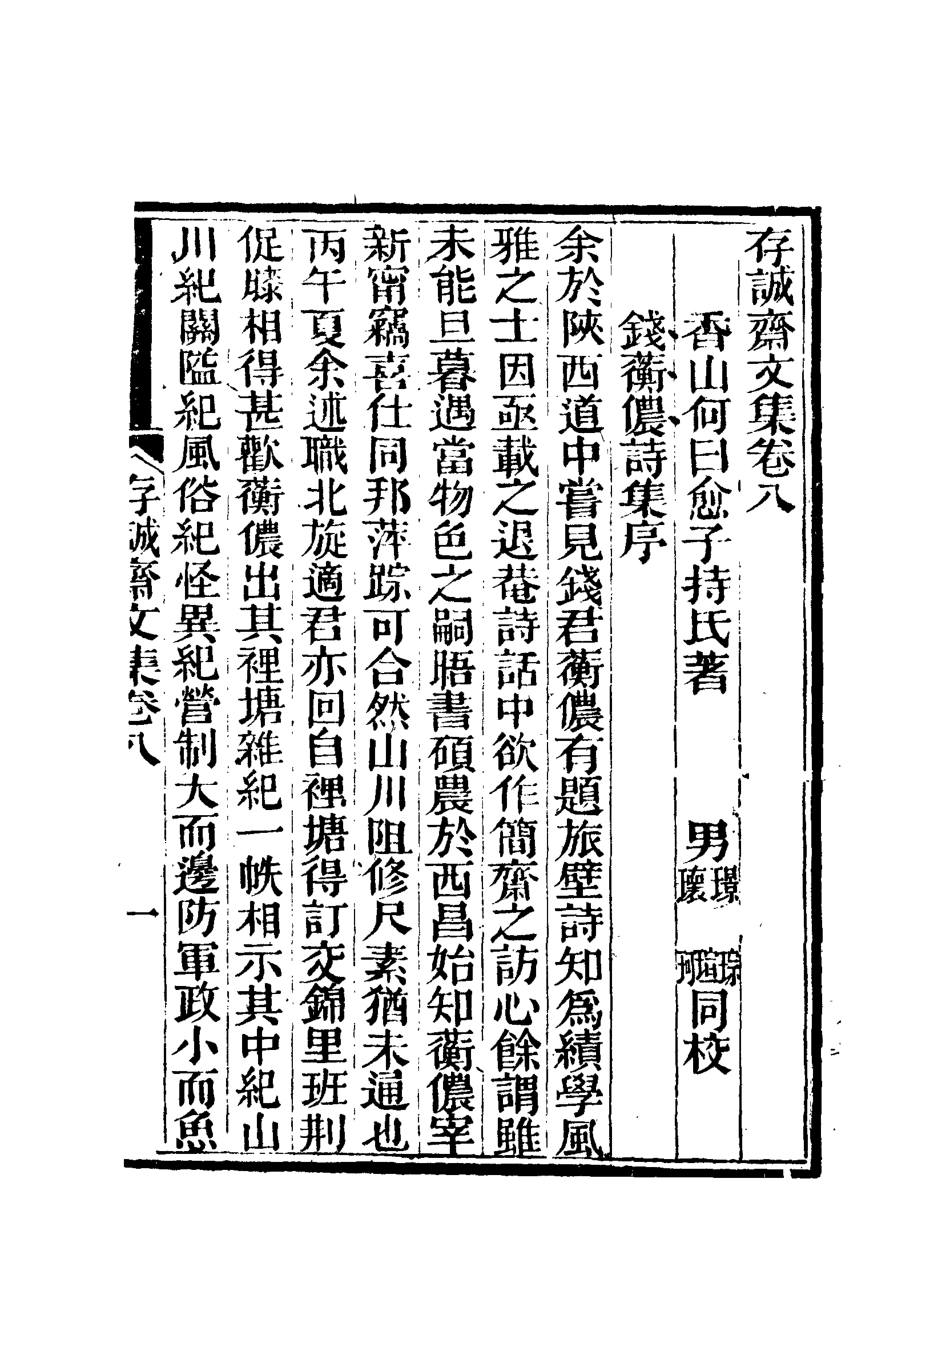 存誠齋文集卷八
香山何曰愈子持氏著　男璟瓌琮瑄㺬同校
錢蘅儂詩集序
余於陝西道中嘗見錢君蘅儂有題旅壁詩知爲績學風
雅之士因亟載之退菴詩話中欲作簡齋之訪心餘謂雖
未能旦暮遇當物色之嗣晤書碩農於西昌始知蘅儂宰
新甯竊喜仕同邦萍踪可合然山川阻修尺素猶未通也
丙午夏余述職北旋適君亦回自裡塘得訂交錦里班荆
促䣛相得甚歡蘅儂出其裡塘雜紀一帙相示其中紀山
川紀關隘紀風俗紀怪異紀營制大而邊防軍政小而魚
存誠齋文集卷八　一